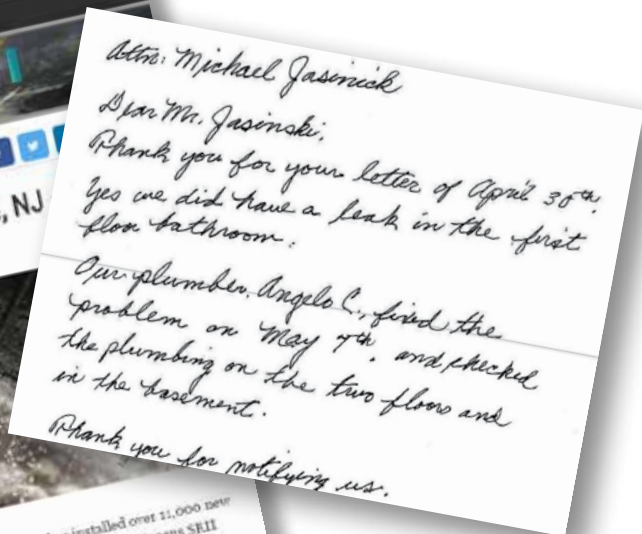 Attn: Michael Jasinick
Dear Mr. Jasinski,
Thank you for your letter of April 30th.
Yes we did have a leak in the first
floor bathroom.
Our plumber, Angelo C., fixed the
problem on May 7th, and checked
the plumbing on the two floors and
in the basement.
Thank you for notifying us.
, NJ
installed over 11,000 new
SRII